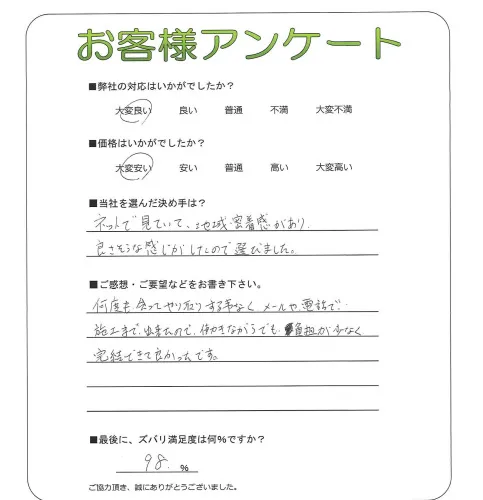 お客様アンケート
■弊社の対応はいかがでしたか？
大変良い 良い 普通 不満 大変不満
■価格はいかがでしたか？
大変安い 安い 普通 高い 大変高い
■当社を選んだ決め手は？
ネットで見ていて、地域密着感があり、
良さそうな感じがしたので選びました。
■ご感想・ご要望などをお書き下さい。
何度も会ってやり取りする事なくメールや電話で
施工まで出来たので、働きながらでも負担が少なく
完結できて良かったです。
■最後に、ズバリ満足度は何%ですか？
98. %
ご協力頂き、誠にありがとうございました。